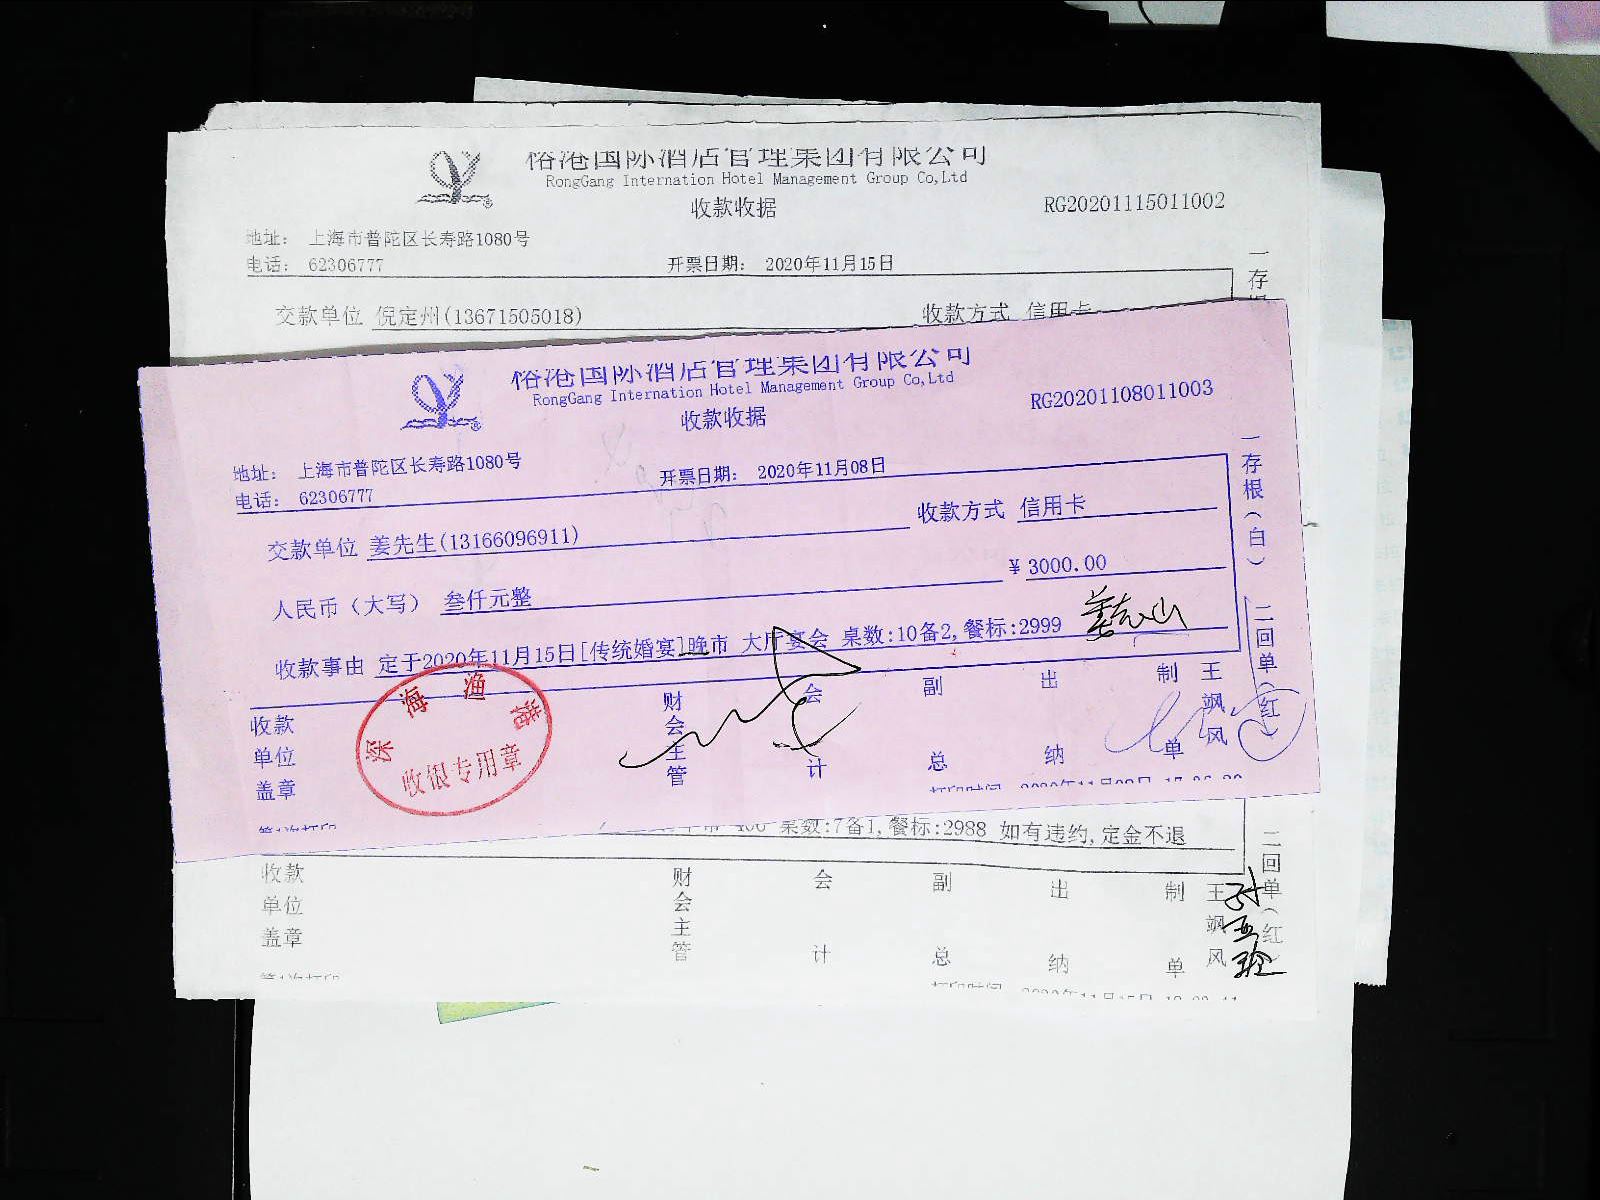 裕港国际酒店管理集团有限公司
RongGang Internation Hotel Management Group Co,Ltd
收款收据
RG20201115011002
地址： 上海市普陀区长寿路1080号
电话： 62306777
开票日期： 2020年11月15日
交款单位 倪定州(13671505018)
收款方式 信用卡
一存
裕港国际酒店管理集团有限公司
RongGang Internation Hotel Management Group Co,Ltd
收款收据
RG20201108011003
地址： 上海市普陀区长寿路1080号
电话： 62306777
开票日期： 2020年11月08日
交款单位 姜先生(13166096911)
收款方式 信用卡
人民币（大写） 叁仟元整
¥ 3000.00
收款事由 定于2020年11月15日[传统婚宴]晚市 大厅宴会 桌数:10备2,餐标:2999
收款单位盖章
财会主管
会计
副总
出纳
制单
王飒风
一存根（白） 二回单（红）
深海渔港
收银专用章
第1次打印
打印时间 2020年11月08日
桌数:7备1,餐标:2988 如有违约,定金不退
收款单位盖章
财会主管
会计
副总
出纳
制单
王飒风
二回单（红）
第1次打印
打印时间 2020年11月15日